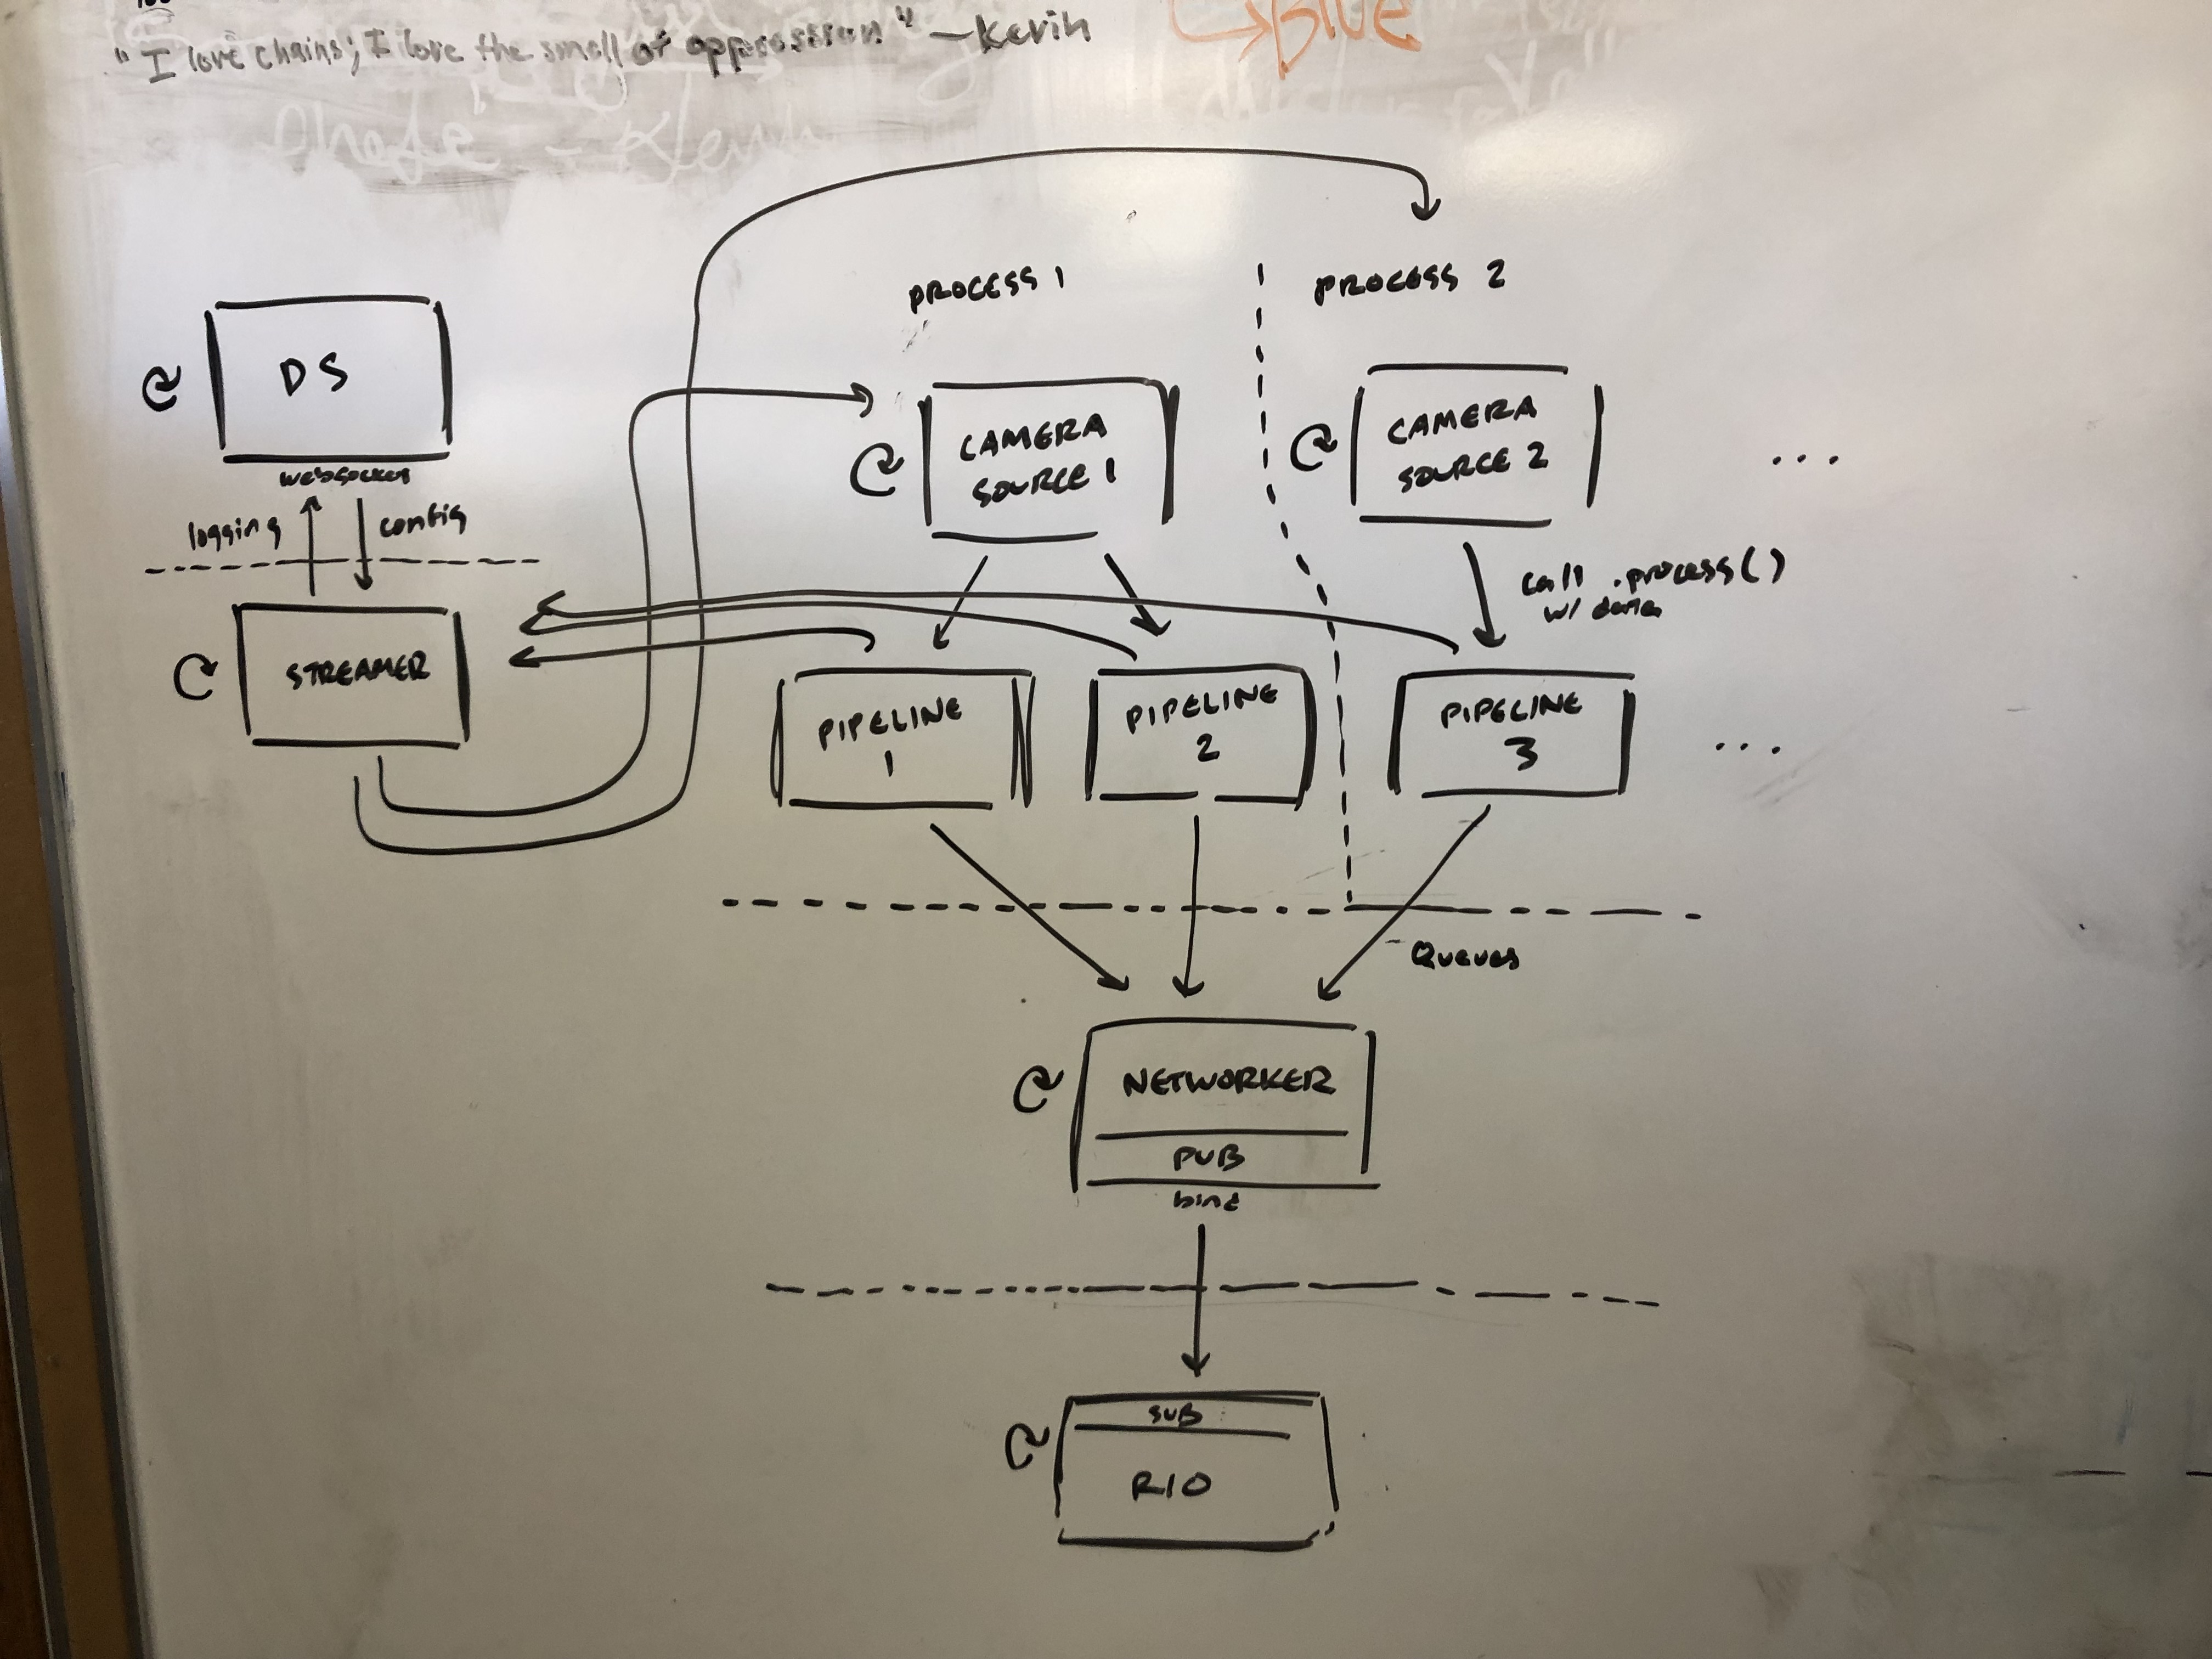 "I love chains; I love the smell of oppression" - Kevin
↳Blue
PROCESS 1
PROCESS 2
DS
websocket
logging
config
STREAMER
CAMERA
SOURCE 1
CAMERA
SOURCE 2
...
call .process()
w/ data
PIPELINE
1
PIPELINE
2
PIPELINE
3
...
Queues
NETWORKER
PUB
bind
SUB
RIO